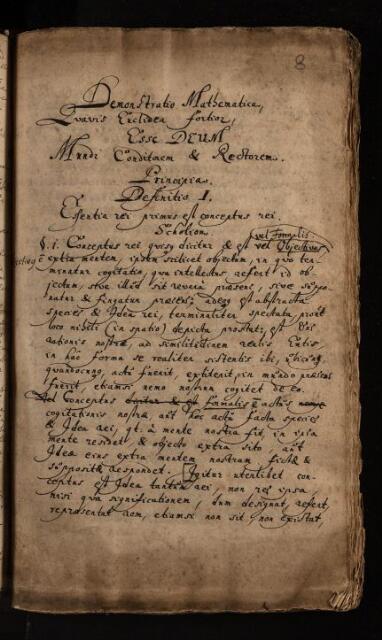 8
Demonstratio Mathematica,
Quavis Euclidea fortior,
Esse DEUM
Mundi Conditorem & Rectorem.
Principia.
Definitio I.
Essentia rei primus est conceptus rei.
Scholion.
vel Formalis
§. 1. Conceptus rei quisq dicitur & est vel Objectivus
extra mentem, ipsum scilicet objectum, in quo ter-
minatur cogitatio, qua intellectus refert id ob-
jectum, sive illud sit revera praesens, sive suppo-
natur & fingatur praesens; adeoq est abstracta
species & Idea rei, terminaliter spectata, prout
loco nisibili (in spatio) depicta prostat; est
cationis nostrae, ad similitudinem realis Entis
in hac forma se realiter sistentis ibi,
quandocunq, actu fuerit, extiterit, in mundo praesens
fuerit, etiamsi nemo nostrum cogitet de eo.
Conceptus dicitur & est formalis actus
cogitationis nostrae, aut hoc actu facta species
& Idea rei, à mente nostra fit, in ipsa
mente residet, & objecto extra sito aut
Ideae eius extra mentem nostram fictae &
suppositae respondet. Igitur uterlibet con-
ceptus est Idea tantum rei, non res ipsa
nisi qua significationem, dum designat, refert,
repraesentat rem, etiamsi non sit non existat,